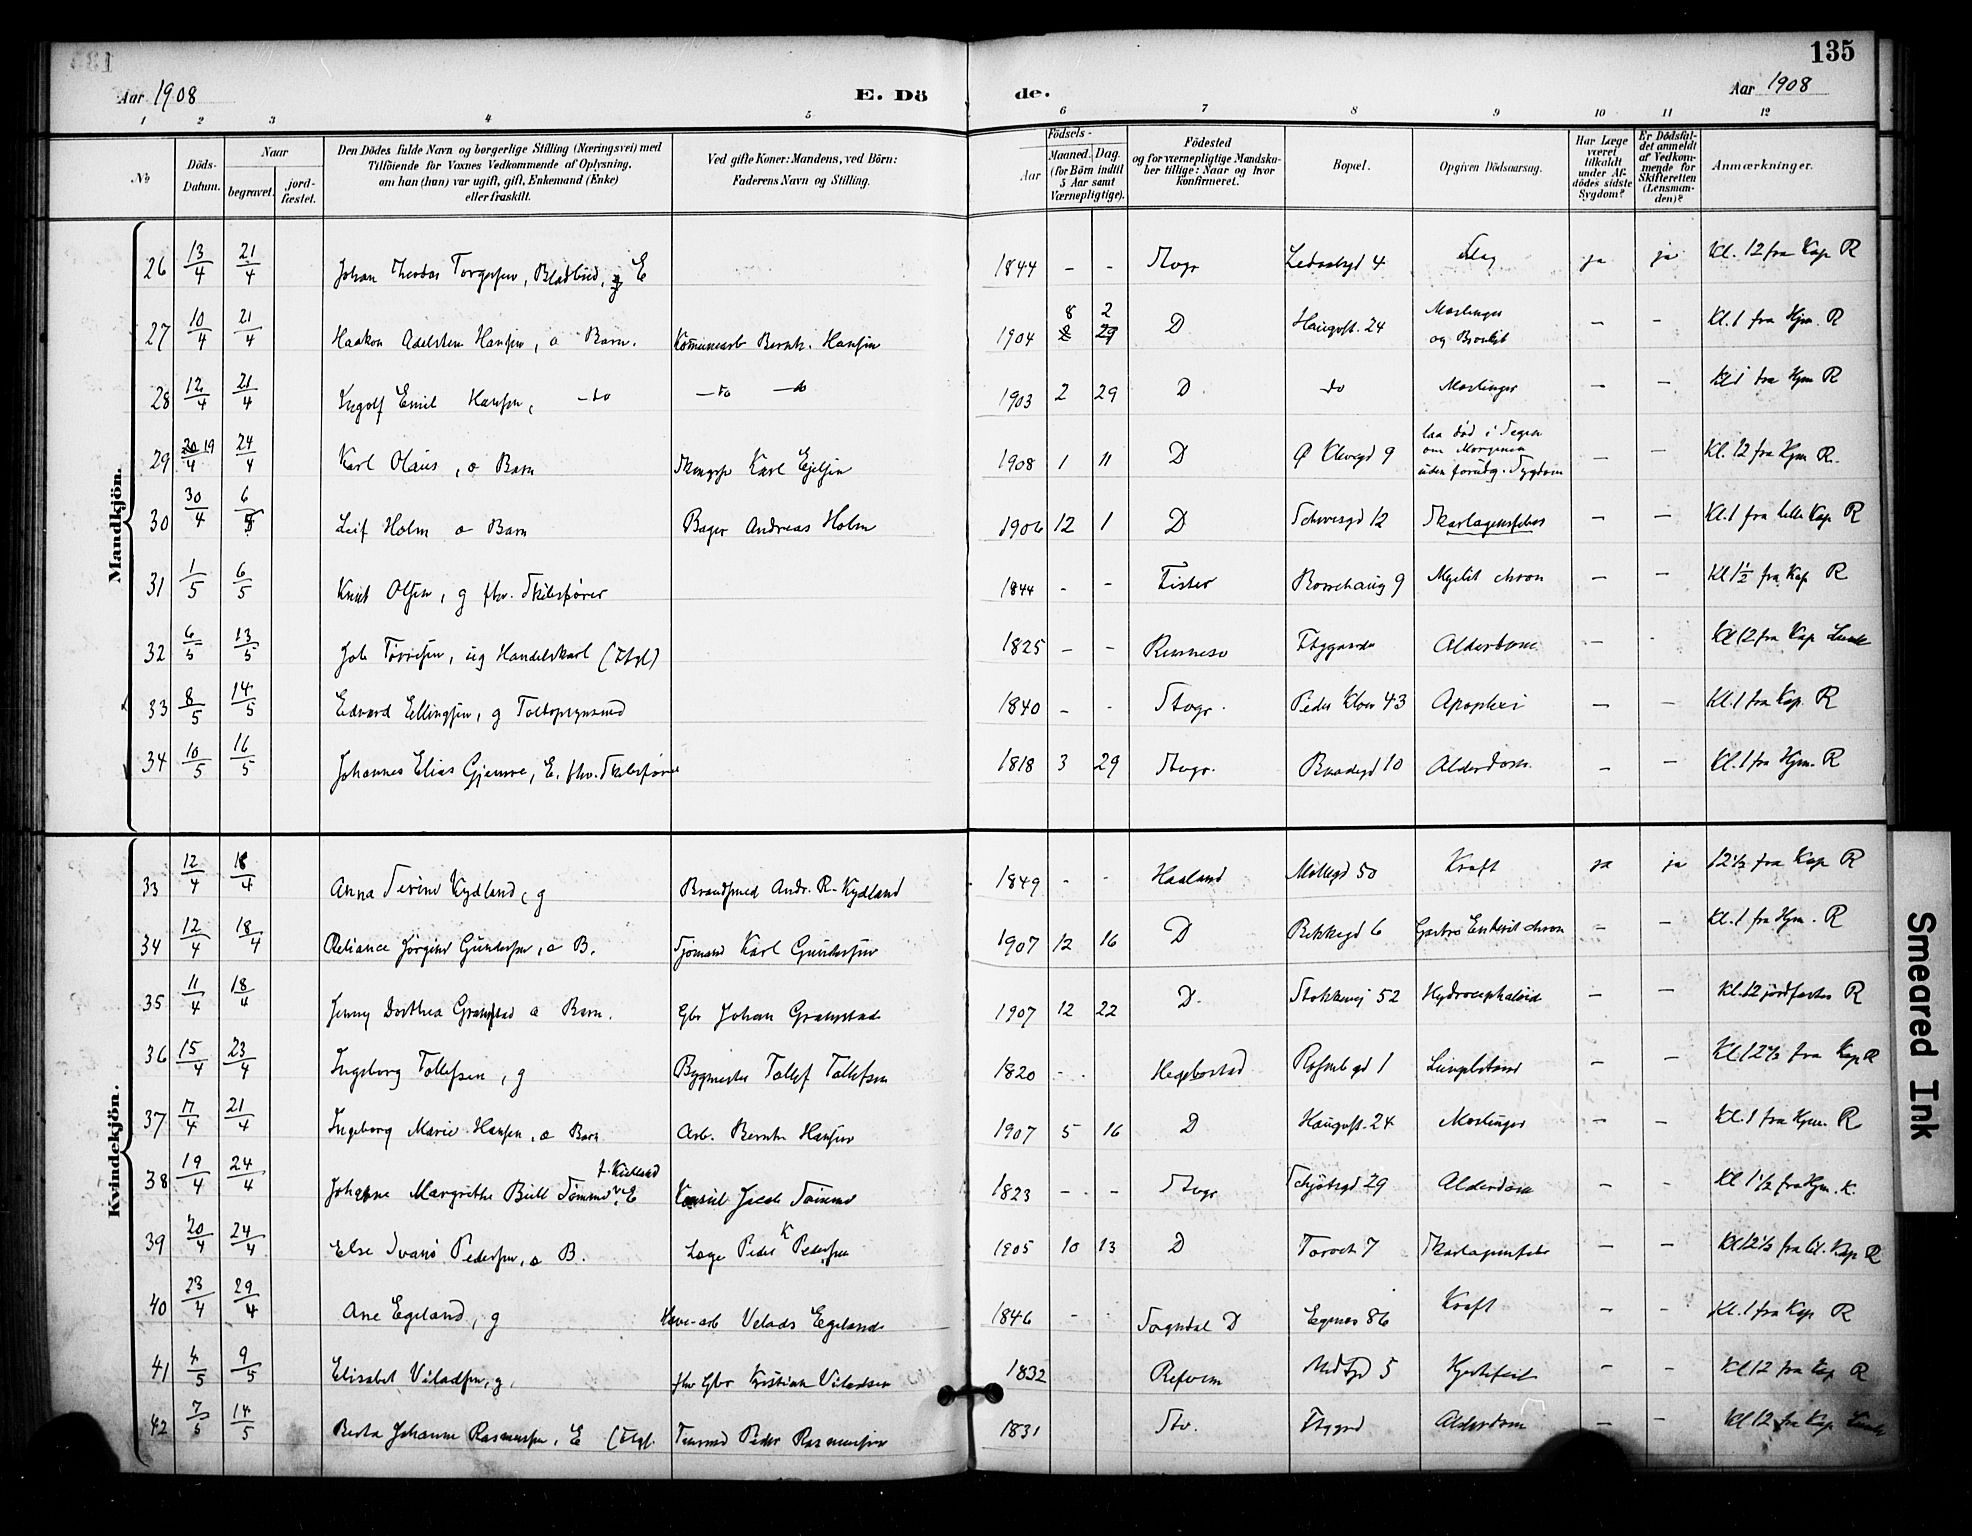 135
Aar 1908
E. Dö
de.
Aar 1908
1 2 3 4 5 6 7 8 9 10 11 12
No
Döds-Datum.
Naar
begravet.
jord-fæstet.
Den Dödes fulde Navn og borgerlige Stilling (Næringsvei) med
Tilföiende for Voxnes Vedkommende af Oplysning,
om han (hun) var ugift, gift, Enkemand (Enke)
eller fraskilt.
Ved gifte Koner: Mandens, ved Börn:
Faderens Navn og Stilling.
Födsels-
Aar
Maaned. Dag.
(for Börn indtil
5 Aar samt
Værnepligtige).
Födested
og for værnepligtige Mandsku-
ber tillige: Naar og hvor
konfirmeret.
Bopæl.
Opgiven Dödsaarsag.
Har Læge
været
tilkaldt
under Af-
dödes sidste
Sygdom?
Er Dödsfal-
det anmeldt
af Vedkom-
mende for
Skifteretten
(Lensman-
den)?
Anmærkninger.
Mandkjön.
26 13/4 21/4 Johan Theodor Torgersen, E 1844 - - Stvgr 4 Slag ja ja Kl. 12 fra Kap R
27 10/4 21/4 Haakon Adelsten Hansen, a Barn. Bernh. Hansen 1904 8 2 D Haugvst. 24 Meslinger og Kl. 1 fra Hjm. R
28 12/4 21/4 Ingolf Emil Hansen, -do -do -do 1903 2 29 D do Meslinger - - Kl 1 fra Hjm R
29 19/4 24/4 Karl Olaus, a Barn Karl 1908 1 11 D Ø Klevegd 9 laa död i Sengen om Morgenen uden forudg. Sygdom - - Kl. 12 fra Hjm R.
30 30/4 6/5 Leif Holm a Barn Bager Andreas Holm 1906 12 1 D 12 Skarlagensfeber - - Kl. 1 fra lille Kap R
31 1/5 6/5 Knut Olsen, g fhv. Skibsfører 1844 - - Fister 9 Myelit chron - - Kl 1½ fra Kap R
32 6/5 13/5 Job ug Handelskarl 1825 - - Rennesø Alderdom - - Kl 12 fra Kap Lunde
33 8/5 14/5 Edvard Ellingsen, g Toldopsynsmd 1840 - - Stvgr. Peder Klows 43 Apoplexi - - Kl. 1 fra Kap. R
34 10/5 16/5 Johannes Elias Gjemre, E. fhv. Skibsfører 1818 3 29 Stvgr. 10 Alderdom - - Kl. 1 fra Hjm. R
Kvindekjön.
33 12/4 18/4 Anna Serine Kydland, g Andr. R. Kydland 1849 - - Haaland Møllegd 50 Kraft ja ja 12½ fra Kap R
34 12/4 18/4 Reliance Jørgine Gundersen, a B. Sjømand Karl Gundersen 1907 12 16 D Bekkegd 6 Gastro Enterit chron - - Kl. 1 fra Hjm. R
35 11/4 18/4 Jenny Dorthea a Barn. Johan 1907 12 22 D. Stokkavej 52 - - Kl. 12 jordfæstes R
36 15/4 23/4 Ingeborg Tollefsen, g Bygmester Tollef Tollefsen 1820 - - Hegebostad 1 - - Kl 12½ fra Kap R
37 17/4 21/4 Ingeborg Marie Hansen, a Barn Arb. Bernh Hansen 1907 5 16 D Haugvst. 24 Meslinger - - Kl. 1 fra Hjem. R
38 19/4 24/4 Johanne Margrethe Bull f. Kielland E Konsul Jacob 1823 - - Stvgr 29 Alderdom - - Kl 1½ fra Hjm. K.
39 20/4 24/4 Else Pedersen, a B. Læge Peder K Pedersen 1905 10 13 D Torvet 7 Skarlagensfeber - - Kl 12½ fra lil. Kap R
40 23/4 29/4 Ane Egeland, g Velads Egeland 1846 - - Sogndal D Egenes 86 Kraft - - Kl. 1 fra Kap R
41 4/5 9/5 Elisabet Viladsen, g. fhv Kristian Viladsen 1832 5 Hjertefeil - - Kl 12 fra Kap R
42 7/5 14/5 Berta Johanne Rasmussen, E Peder Rasmussen 1831 Stv. Alderdom - - Kl 12 fra Kap Lunde
Smeared Ink